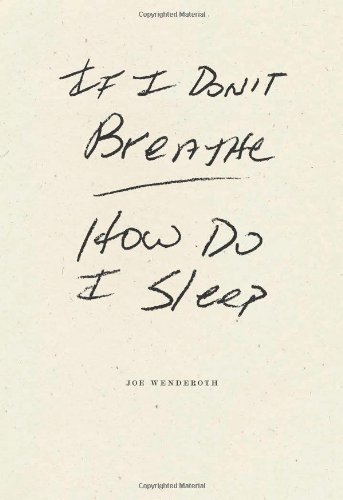 Copyrighted Material
If I Don't
Breathe
How Do
I Sleep
JOE WENDEROTH
Copyrighted Material